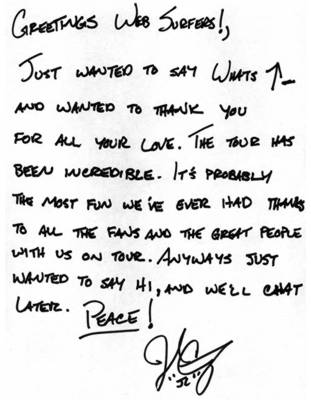 GREETINGS WEB SURFERS!,
JUST WANTED TO SAY WHATS ↑
AND WANTED TO THANK YOU
FOR ALL YOUR LOVE. THE TOUR HAS
BEEN INCREDIBLE. IT'S PROBABLY
THE MOST FUN WE'VE EVER HAD THANKS
TO ALL THE FANS AND THE GREAT PEOPLE
WITH US ON TOUR. ANYWAYS JUST
WANTED TO SAY HI, AND WE'LL CHAT
LATER. PEACE!